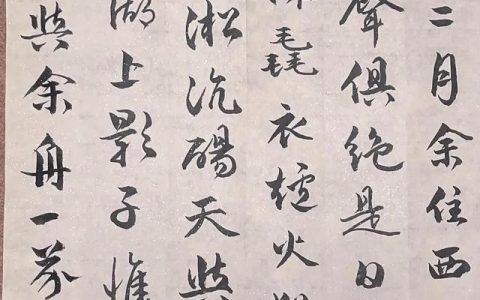 二月余住西
聲俱絕是日
毳衣爐火
淞沆碭天與
湖上影子惟
與余舟一芥